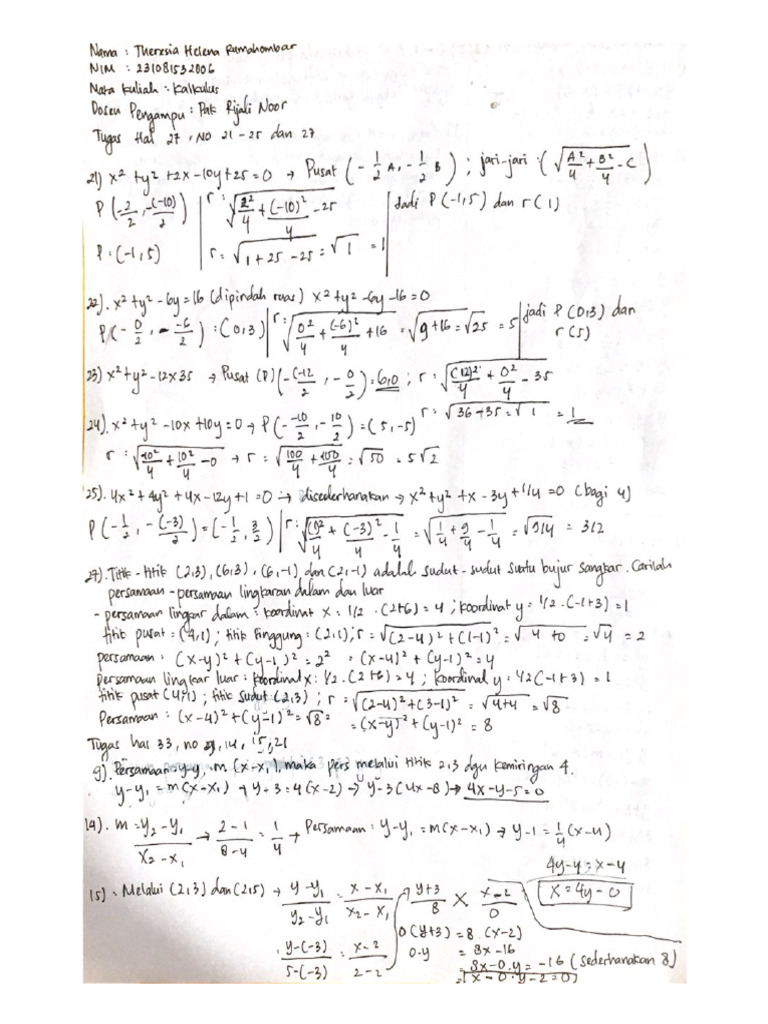 Nama : Theresia Helena Rumahombar
NIM : 231081532006
Mata Kuliah : Kalkulus
Dosen Pengampu : Pak Rijali Noor
Tugas Hal 27, NO 21 - 25 dan 27
21) x² + y² + 2x - 10y + 25 = 0 → Pusat (- 1/2 A, - 1/2 B) ; jari-jari : (√(A²/4 + B²/4 - C))
P (-2/2, -(-10)/2) | r : √(2²/4 + (-10)²/4 - 25) | Jadi P (-1,5) dan r (1)
P : (-1,5) | r = √(1 + 25 - 25) = √1 = 1
22). x² + y² - 6y = 16 (dipindah ruas) x² + y² - 6y - 16 = 0
P (- 0/2, - -6/2) : (0,3) | r : √(0²/4 + (-6)²/4 + 16) = √(9 + 16) = √25 = 5 | jadi P (0,3) dan r (5)
23) x² + y² - 12x 35 → Pusat (P) (- (-12/2, - 0/2) = 6,0 ; r = √((12)²/4 + 0²/4 - 35)
r = √(36 + 35) = √1 = 1
24). x² + y² - 10x + 10y = 0 → P (- -10/2, - 10/2) = (5, -5)
r = √(10²/4 + 10²/4 - 0) → r = √(100/4 + 100/4) = √50 = 5√2
25). 4x² + 4y² + 4x - 12y + 1 = 0 → disederhanakan → x² + y² + x - 3y + 1/4 = 0 (bagi 4)
P (- 1/2, - (-3)/2) = (- 1/2, 3/2) | r : √((1)²/4 + (-3)²/4 - 1/4) = √(1/4 + 9/4 - 1/4) = √9/4 = 3/2
27). Titik - titik (2,3), (6,3), (6,-1) dan (2,-1) adalah sudut - sudut suatu bujur sangkar. Carilah
persamaan - persamaan lingkaran dalam dan luar
- persamaan lingkar dalam : koordinat x = 1/2 . (2+6) = 4 ; koordinat y = 1/2 . (-1+3) = 1
titik pusat : (4,1) ; titik singgung : (2,1) ; r = √((2-4)² + (1-1)²) = √(4 + 0) = √4 = 2
persamaan : (x-y)² + (y-1)² = 2² = (x-4)² + (y-1)² = 4
persamaan lingkar luar : koordinat x : 1/2 . (2+6) = 4 ; koordinat y : 1/2 (-1+3) = 1
titik pusat (4,1) ; titik sudut (2,3) ; r = √((2-4)² + (3-1)²) = √(4+4) = √8
Persamaan : (x-4)² + (y-1)² = √8² = (x-4)² + (y-1)² = 8
Tugas hal 33, no 9, 14, 15, 21
9). Persamaan : y-y₁ = m (x-x₁), maka pers melalui titik 2,3 dgn kemiringan 4.
y-y₁ = m(x-x₁) → y+3 = 4(x-2) → y-3 (4x-8) → 4x-y-5 = 0
14). m = y₂-y₁/x₂-x₁ → 2-1/8-4 = 1/4 → Persamaan : y-y₁ = m(x-x₁) → y-1 = 1/4 (x-4)
4y-4 = x-4
x = 4y - 0
15) = Melalui (2,3) dan (2,5) → y-y₁/y₂-y₁ = x-x₁/x₂-x₁
y-(-3)/5-(-3) = x-2/2-2
y+3/8 × x-2/0
0 (y+3) = 8 . (x-2)
0.y = 8x - 16
= 8x - 0.y = -16 (sederhanakan 8)
= x - 0 . y - 2 = 0)